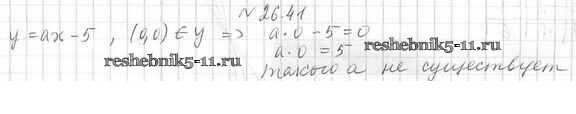 № 26.41
y = ax - 5 , (0,0) ∈ y => a·0 - 5 = 0
a·0 = 5
reshebnik5-11.ru
reshebnik5-11.ru
такого а не существует